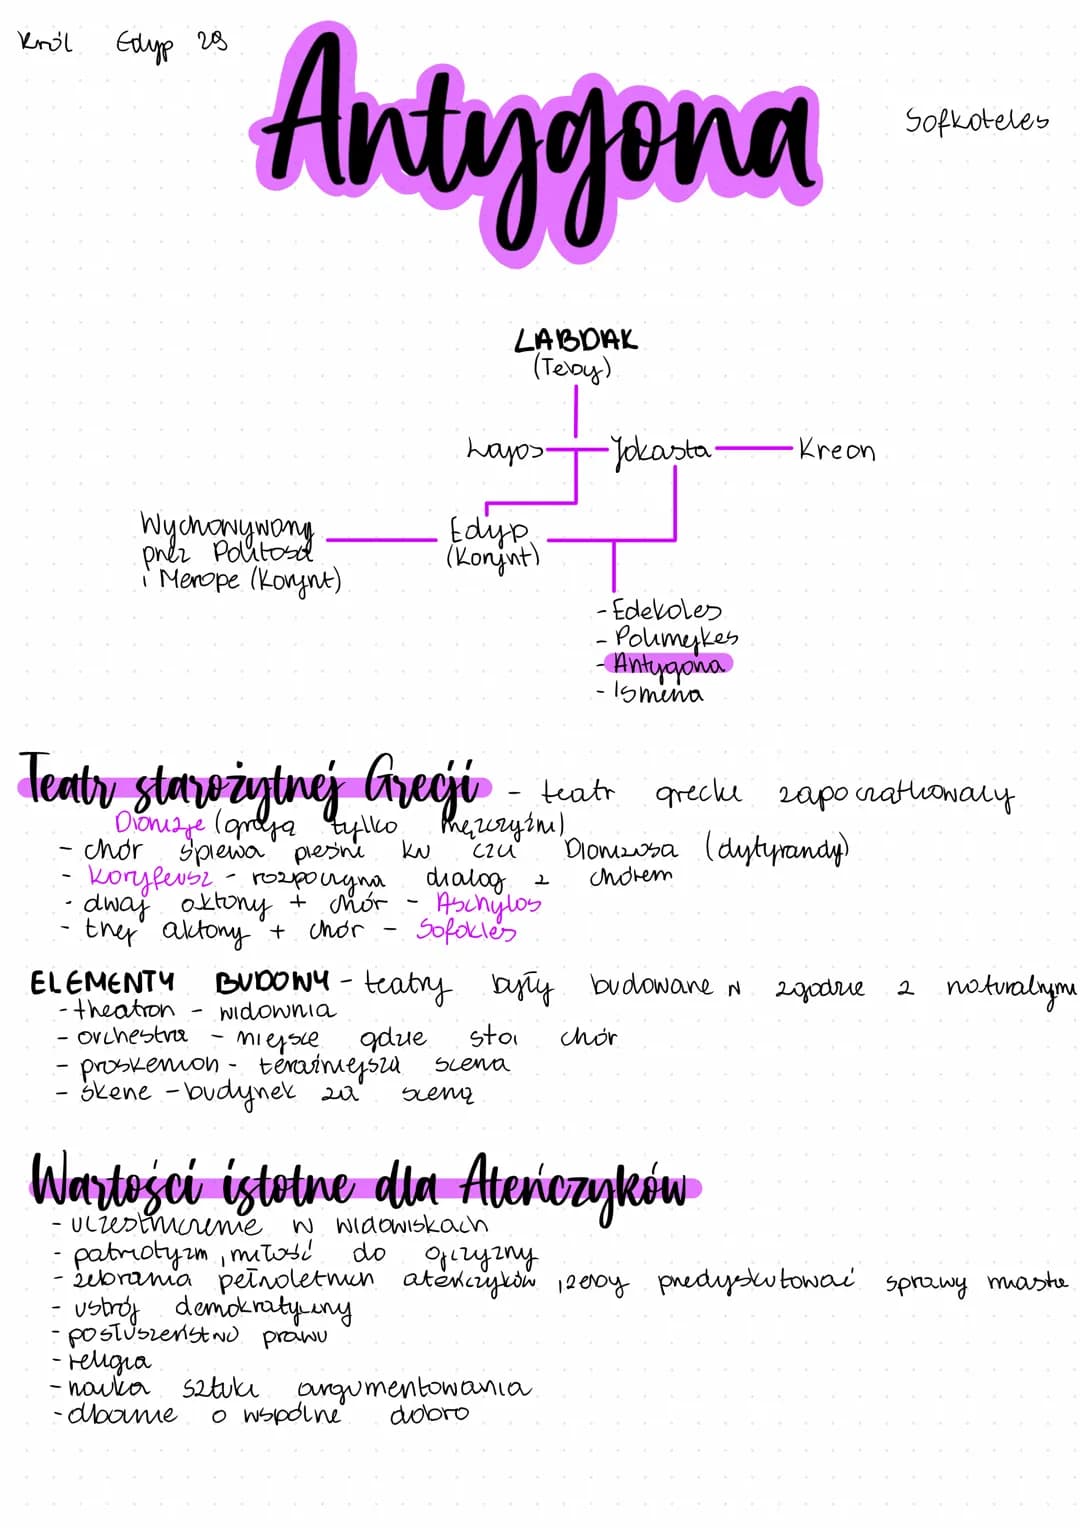 Król Edyp 29
Antygona
Sofkoteles
LABDAK
(Teby)
Lajos Jokasta Kreon
Wychowywany
przez Politosa
i Merope (Korynt)
Edyp
(Korynt)
- Edekoles
- Polimejkes
- Antygona
- Ismena
Teatr starożytnej Grecji - teatr grecki zapoczątkowały
Dionizje (grają tylko mężczyźni)
- chór śpiewa pieśni ku czci Dionizosa (dytyrandy)
- Koryfeusz - rozpoczyna dialog z chórem
- dwaj aktorzy + chór - Aschylos
- trzej aktorzy + chór - Sofokles
ELEMENTY BUDOWY - teatry były budowane w zgodzie z naturalnymi
- theatron - widownia
- orchestra - miejsce gdzie stoi chór
- proskenion - teraźniejsza scena
- skene - budynek za sceną
Wartości istotne dla Ateńczyków
- uczestniczenie w widowiskach
- patriotyzm, miłość do ojczyzny
- zebrania pełnoletnich ateńczyków, żeby przedyskutować sprawy miasta
- ustrój demokratyczny
- posłuszeństwo prawu
- religia
- nauka sztuki argumentowania
- dbanie o wspólne dobro